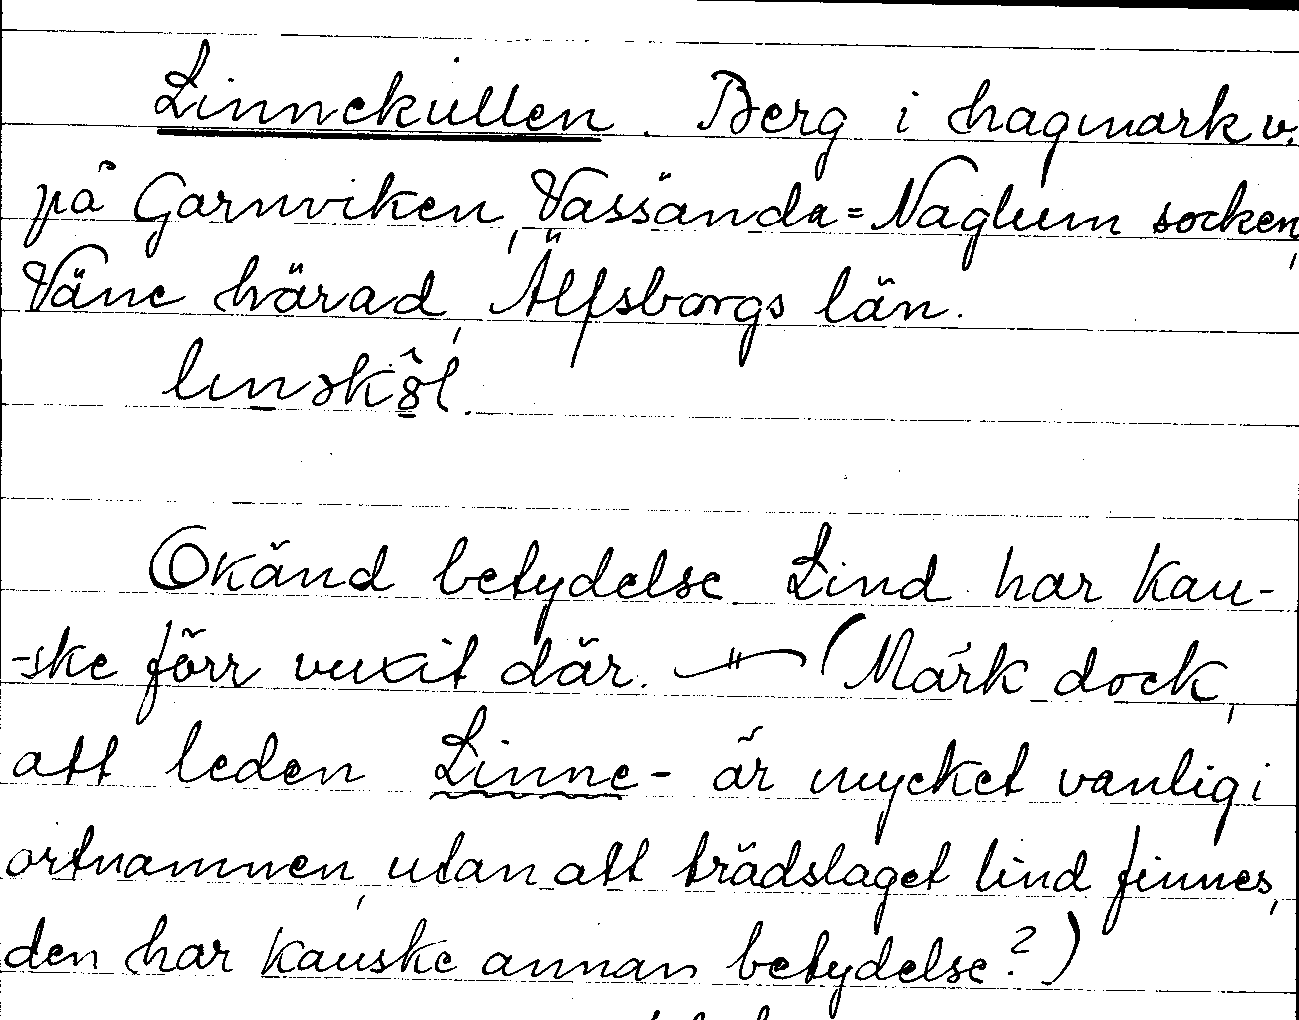 Linnekullen. Berg i hagmark v.
på Garnviken, Vassända=Naglum socken,
Väne härad, Älfsborgs län.
linskôl.
Okänd betydelse. Lind har kan-
-ske förr vuxit där. (Märk dock,
att leden Linne- är mycket vanlig i
ortnamnen, utan att trädslaget lind finnes,
den har kanske annan betydelse?)